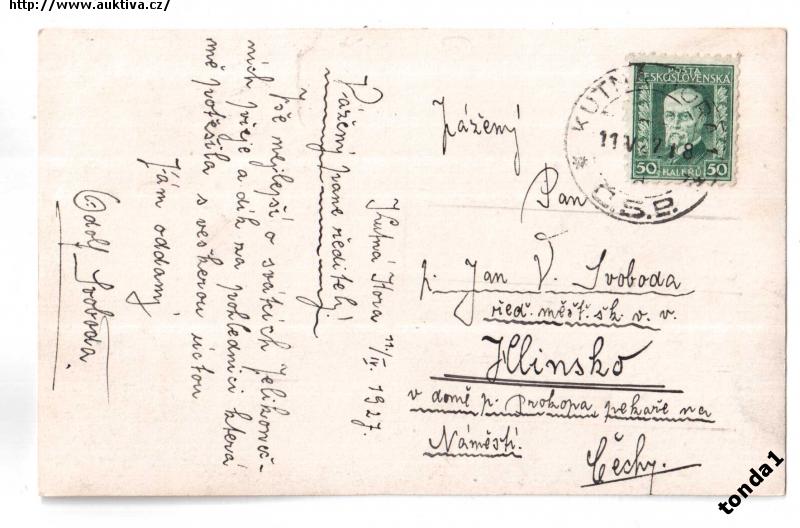 http://www.auktiva.cz/
Kutná Hora 11./IV. 1927.
Vážený pane řediteli
Vše nejlepší o svátcích Velikonoč-
ních přeje a dík za pohlednici která
mě potěšila s veškerou úctou
Vám oddaný
Adolf Svoboda.
POŠTA
ČESKOSLOVENSKÁ
50 HALÉŘŮ 50
* KUTNÁ HORA *
Č.S.P.
Vážený
Pan
p. Jan V. Svoboda
řed. měšť. šk. v. v.
Hlinsko
v domě p. Prokopa pekaře na
Náměstí.
Čechy.
tonda1